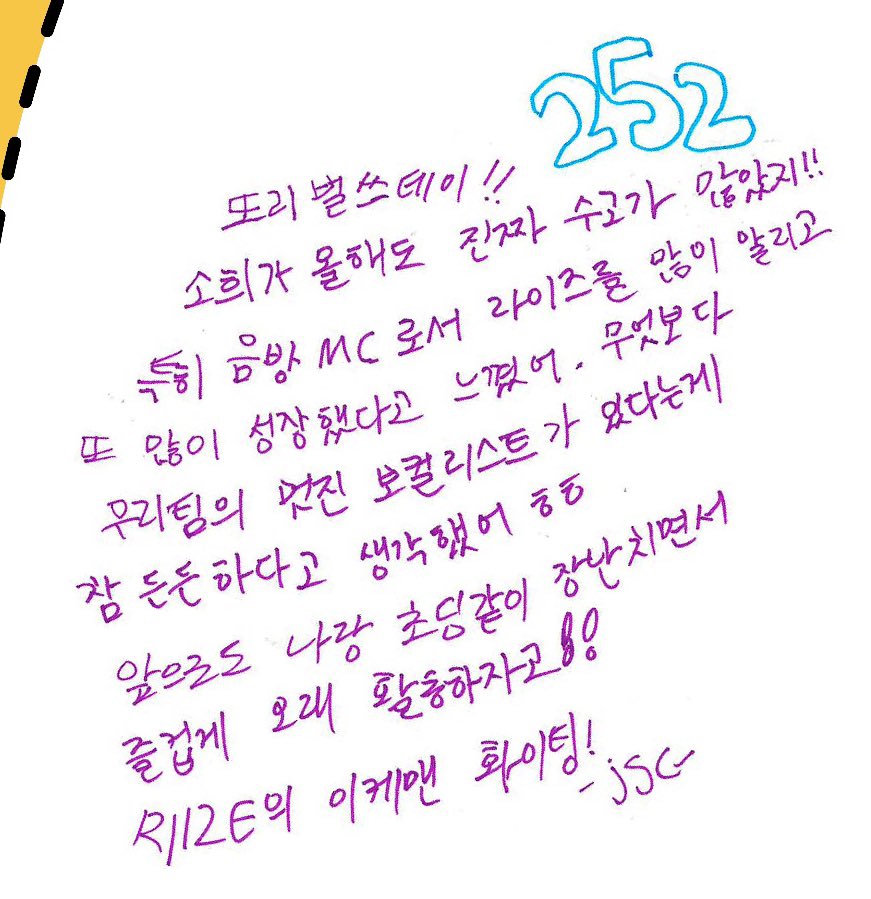 252
또리 벌쓰데이!!
소희가 올해도 진짜 수고가 많았지!!
특히 음방 MC로서 라이즈를 많이 알리고
또 많이 성장했다고 느꼈어. 무엇보다
우리팀의 멋진 보컬리스트가 있다는게
참 든든하다고 생각했어 ㅎㅎ
앞으로도 나랑 초딩같이 장난치면서
즐겁게 오래 활동하자고!!
RIIZE의 이케맨 화이팅!
-jsc